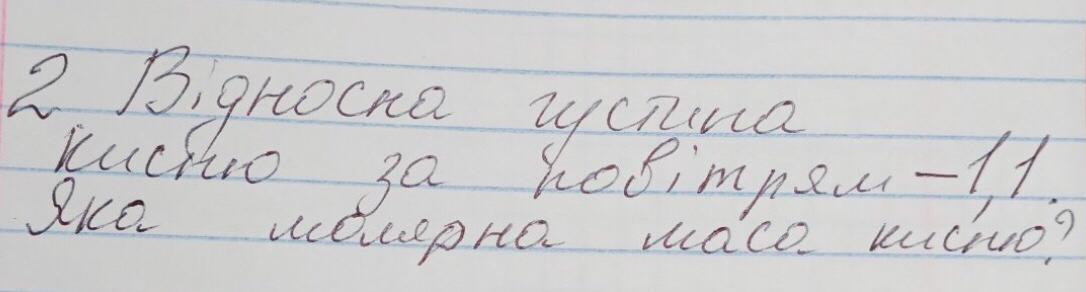 2 Відносна густина
кисню за повітрям – 1,1.
Яка молярна маса кисню?